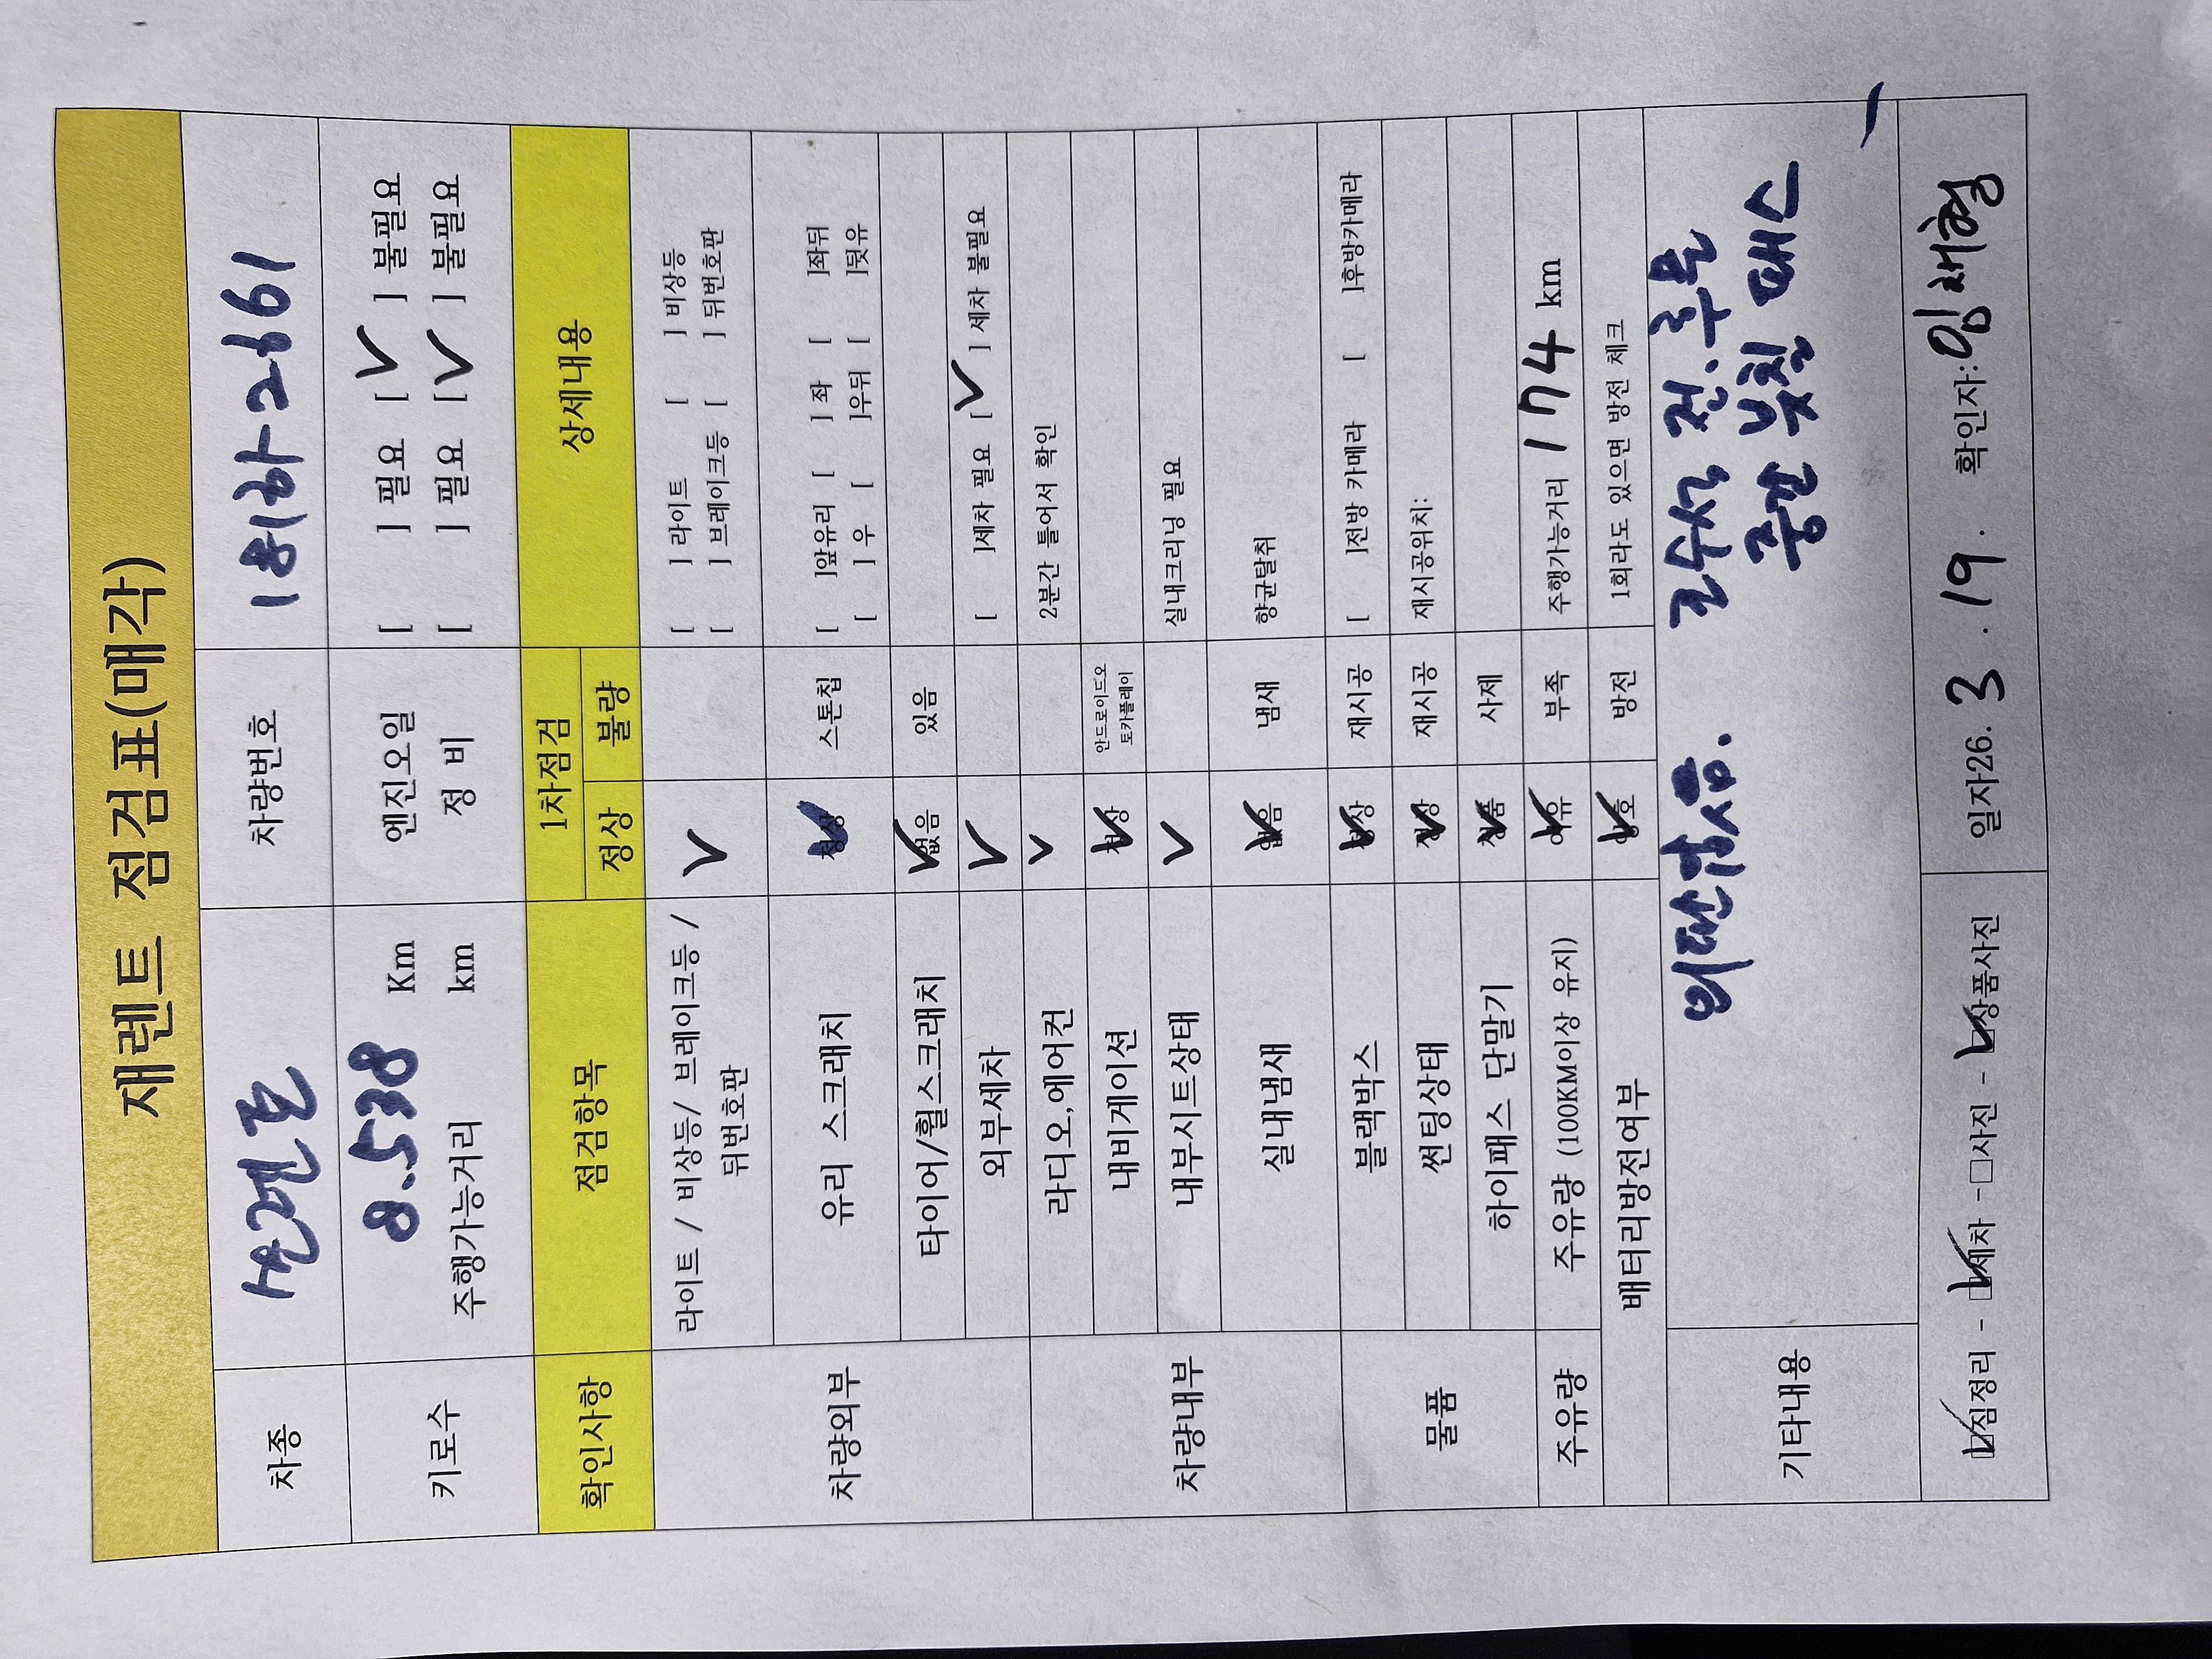 재렌트 점검표(매각)
차종 쏘렌토 차량번호 181하-2661
키로수 8.538 Km 엔진오일 [ ] 필요 [V] 불필요
주행가능거리 km 정 비 [ ] 필요 [V] 불필요
확인사항 점검항목 1차점검 상세내용
정상 불량
차량외부 라이트 / 비상등/ 브레이크등 / V [ ] 라이트 [ ] 비상등
뒤번호판 [ ] 브레이크등 [ ] 뒤번호판
유리 스크래치 정상 V 스톤칩 [ ]앞유리 [ ] 좌 [ ]좌뒤
[ ] 우 [ ]우뒤 [ ]뒷유
타이어/휠스크래치 없음 V 있음
외부세차 V [ ]세차 필요 [V] 세차 불필요
차량내부 라디오,에어컨 V 2분간 틀어서 확인
내비게이션 정상 V 안드로이드오
토카플레이
내부시트상태 V 실내크리닝 필요
실내냄새 없음 V 냄새 향균탈취
물품 블랙박스 정상 V 재시공 [ ]전방 카메라 [ ]후방카메라
썬팅상태 정상 V 재시공 재시공위치:
하이패스 단말기 정품 V 사제
주유량 주유량 (100KM이상 유지) 여유 V 부족 주행가능거리 174 km
배터리방전여부 양호 V 방전 1회라도 있으면 방전 체크
기타내용 외판없음. 조수석 전.후문
중간 붓칠 패스
V짐정리 - V세차 - □사진 - V상품사진 일자26. 3 . 19 . 확인자:임채형